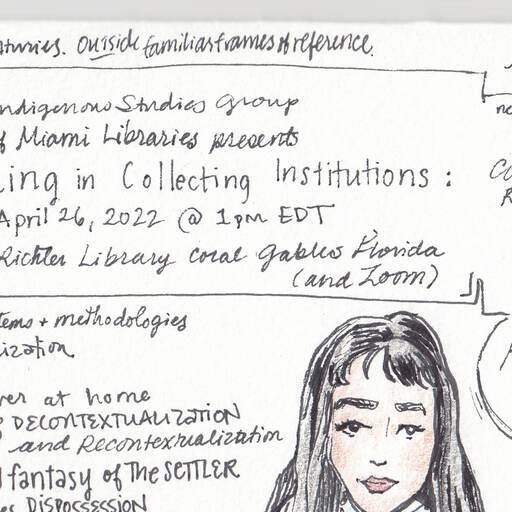 turies. Outside familiar frames of reference.
ndigenous Studies Group
f Miami Libraries presents
ing in Collecting Institutions:
April 26, 2022 @ 1pm EDT
Richter Library Coral Gables Florida
(and Zoom)
tems + methodologies
ization
ver at home
DECONTEXTUALIZATION
and Recontextualization
fantasy of The SETTLER
es DISPOSSESSION